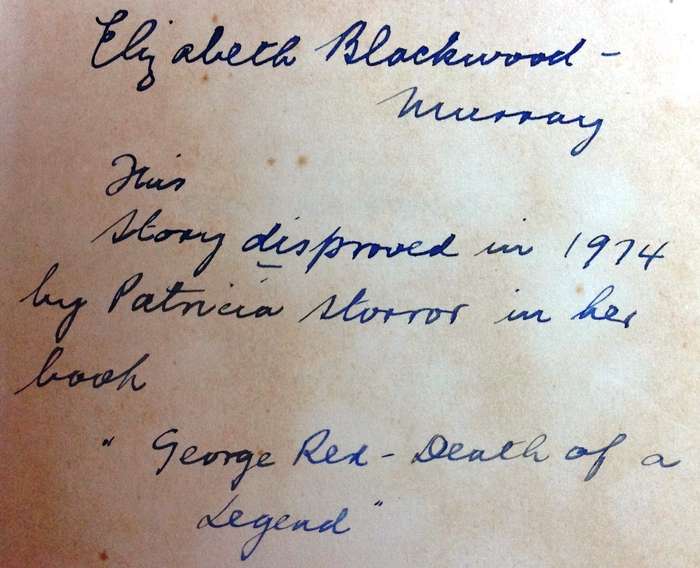 Elizabeth Blackwood-
Murray
This
Story disproved in 1974
by Patricia Storror in her
book
"George Rex - Death of a
Legend"